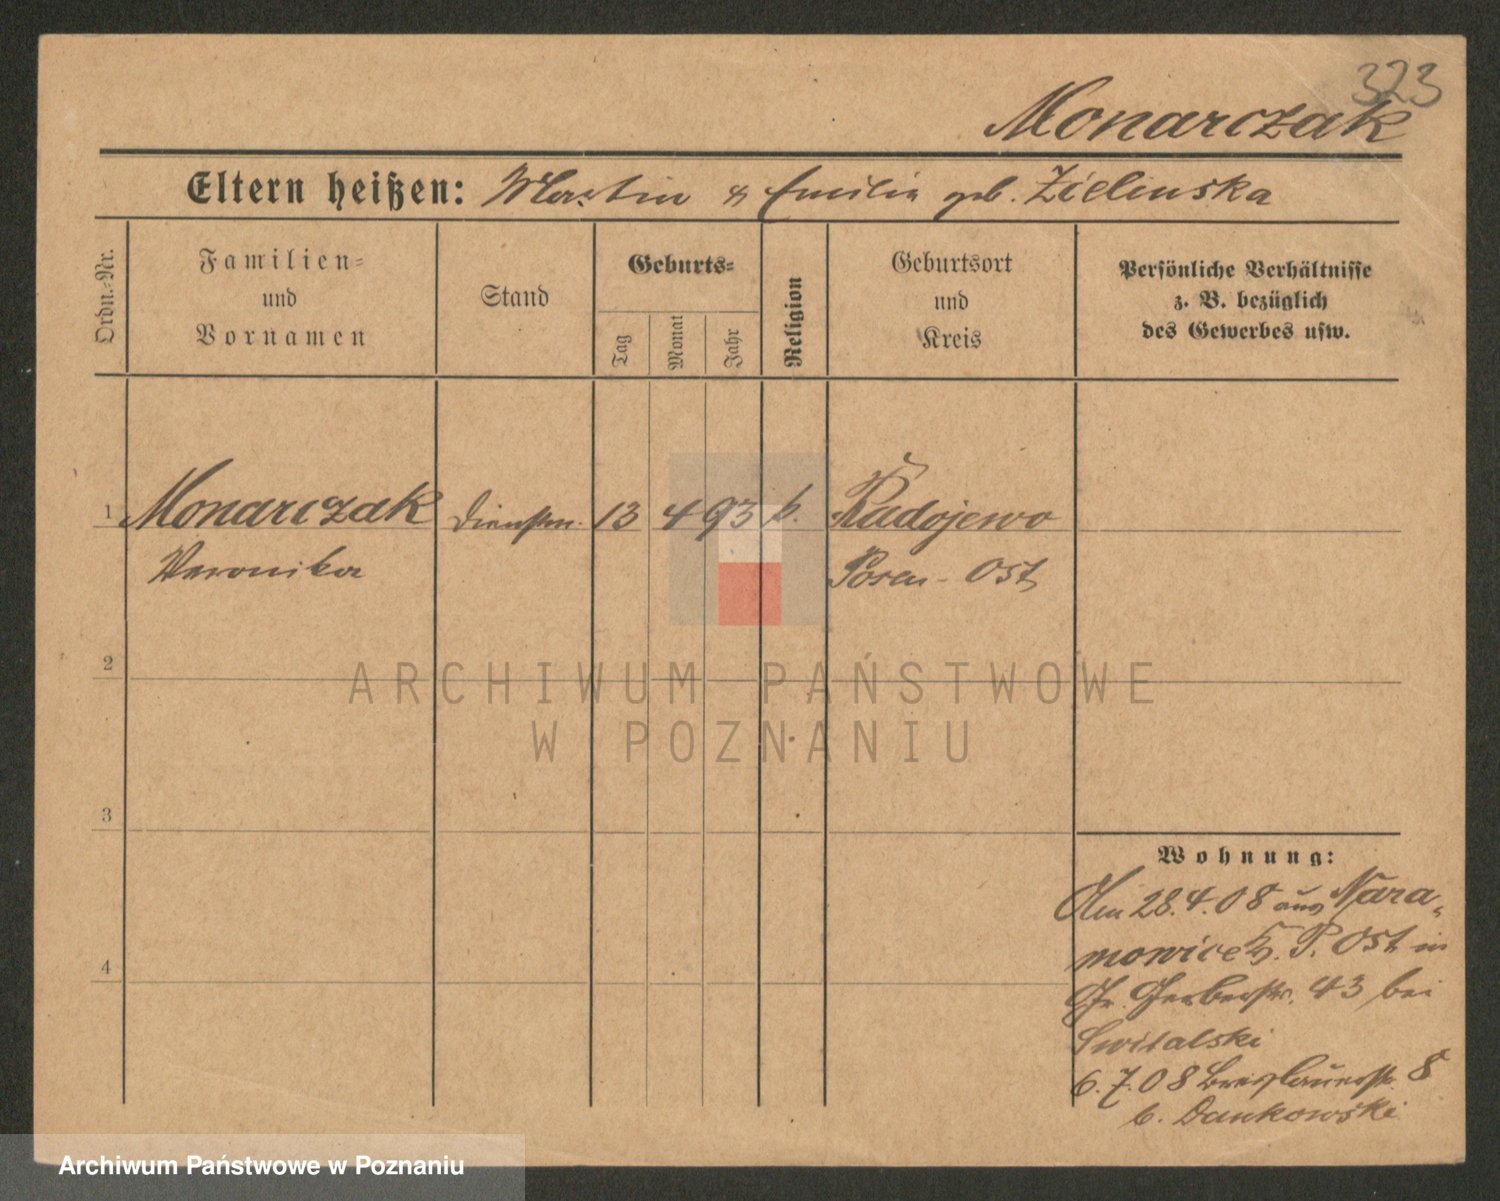 323
Monarczak
Eltern heißen: Martin & Emilie geb. Zielinska
Ordn.-Nr.
Familien-
und
Vornamen
Stand
Geburts-
Tag
Monat
Jahr
Religion
Geburtsort
und
Kreis
Persönliche Verhältnisse
z. B. bezüglich
des Gewerbes usw.
1 Monarczak Dienstm. 13 4 93 k. Radojewo
Veronika Posen-Ost
2
3
4
Wohnung:
Am 28.4.08 aus Nara-
mowice K. P. Ost in
Gr. Gerberstr. 43 bei
Switalski
6.7.08 Breslauerstr. 8
b. Dankowski
ARCHIWUM PAŃSTWOWE
W POZNANIU
Archiwum Państwowe w Poznaniu